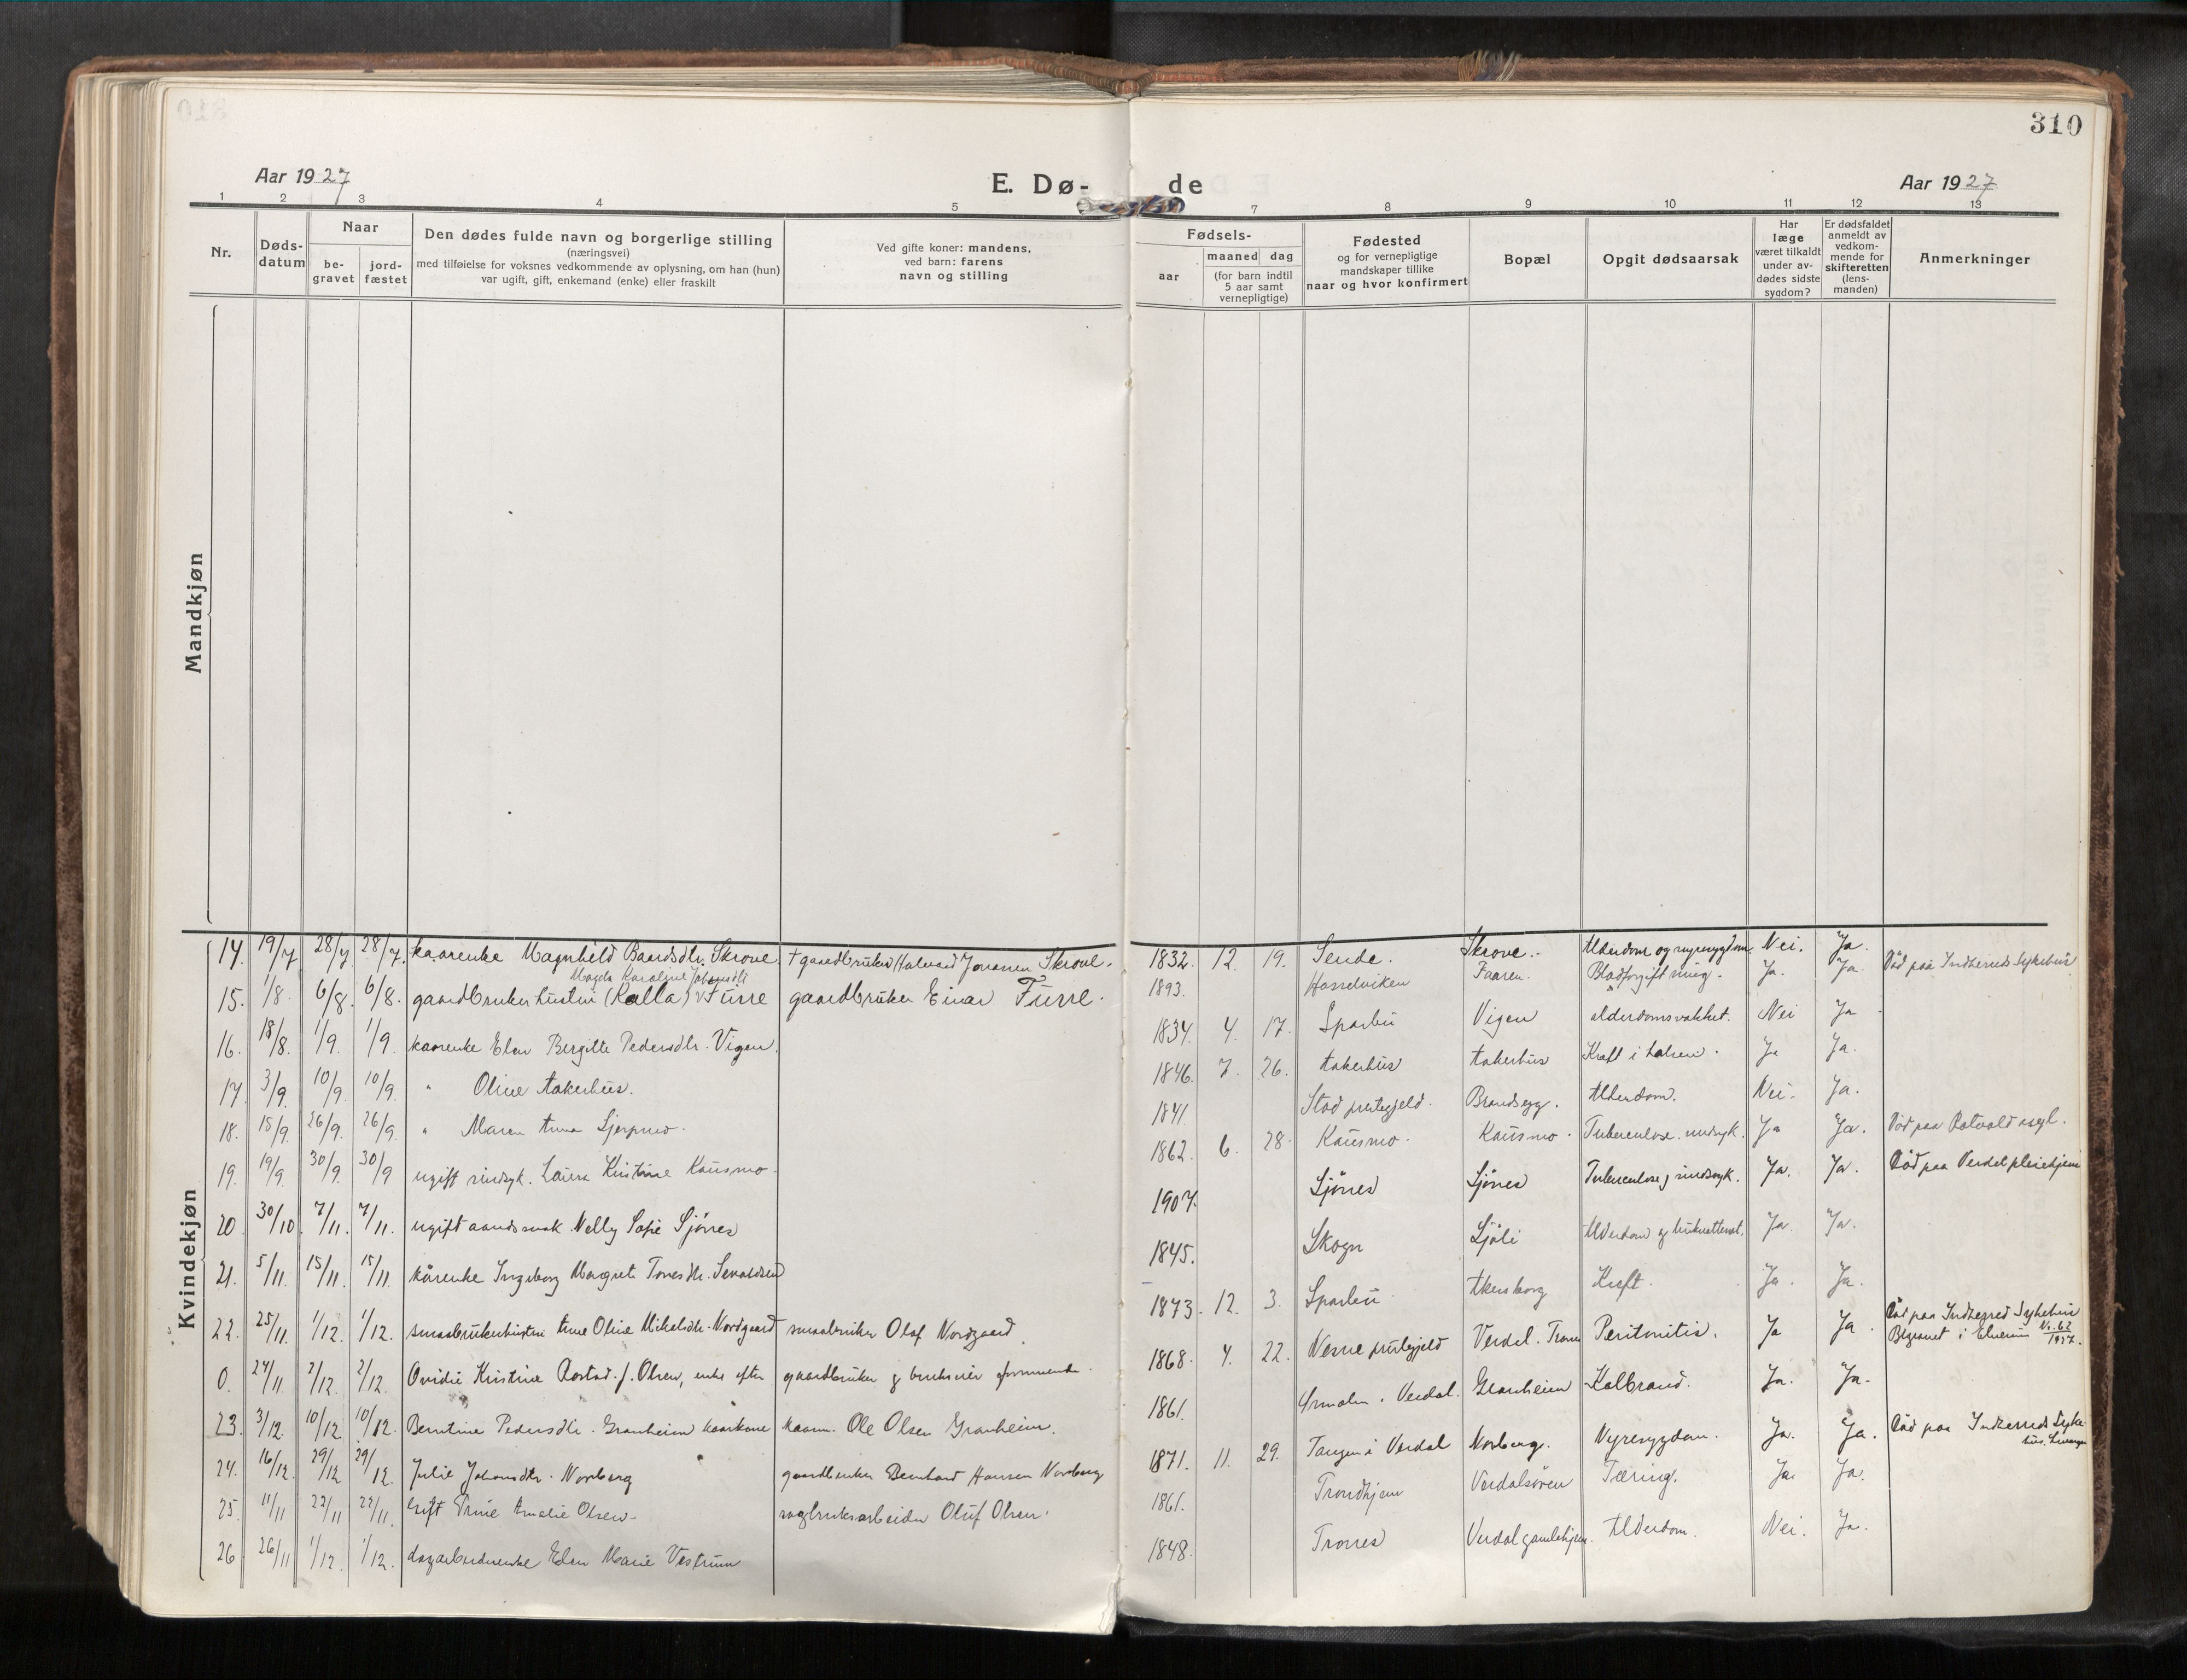 310
Aar 1927
E. Dø-
de
Aar 1927
1 2 3 4 5 7 8 9 10 11 12 13
Nr.
Døds-
datum
Naar
be-
gravet
jord-
fæstet
Den dødes fulde navn og borgerlige stilling
(næringsvei)
med tilføielse for voksnes vedkommende av oplysning, om han (hun)
var ugift, gift, enkemand (enke) eller fraskilt
Ved gifte koner: mandens,
ved barn: farens
navn og stilling
Fødsels-
aar
maaned dag
(for barn indtil
5 aar samt
vernepligtige)
Fødested
og for vernepligtige
mandskaper tillike
naar og hvor konfirmert
Bopæl
Opgit dødsaarsak
Har
læge
været tilkaldt
under av-
dødes sidste
sygdom?
Er dødsfaldet
anmeldt av
vedkom-
mende for
skifteretten
(lens-
manden)
Anmerkninger
Mandkjøn
Kvindekjøn
14. 19/7 28/7 28/7. kaarenke Magnhild Baardsdtr. Skrove. † gaardbruker Halvard Jonassen Skrove. 1832. 12. 19. Sende. Skrove. Alderdom og nyresygdom. Nei. Ja.
Magda Karoline Johansdtr
15. 1/8 6/8. 6/8. gaardbrukerhustru (Kalla) Furre gaardbruker Einar Furre. 1893. Hasselviken Faaren. Blodforgiftning. Ja. Ja. Död paa Indherreds Sykehus
16. 18/8. 1/9. 1/9. kaarenke Elen Bergitte Pedersdtr. Vigen. 1834. 4. 17. Sparbu Vigen alderdomsvakhet. Nei Ja
17. 3/9. 10/9. 10/9. " Oline Aakerhus. 1846. 7. 26. Aakerhus Aakerhus Kræft i halsen. Ja Ja.
18. 15/9. 26/9. 26/9. " Maren Anna 1841. Stod prestegjeld. Brandsegg. Alderdom. Nei. Ja.
19. 19/9. 30/9. 30/9 ugift sindsyk. Laura Kristine Kausmo. 1862. 6. 28. Kausmo. Kausmo. Tuberculose. sindsyk. Ja Ja. Död paa Rotvold asyl.
20 30/10. 7/11. 7/11. ugift aandssvak Nelly Sofie Sjönes 1907. Sjönes Sjönes Tuberculose, sindssyk. Ja. Ja. Död paa Verdal pleiehjem
21. 5/11. 15/11. 15/11. kårenke Ingeborg Margrete Tonesdtr. Sevaldsen 1845. Skogn Sjöli Alderdom og Ja. Ja.
22. 25/11. 1/12. 1/12. smaabrukerhustru Anne Oline Mikalsdtr. Nordgaard smaabruker Olaf Nordgaard 1873. 12. 3. Sparbu Kræft. Ja. Ja.
0. 24/11 2/12. 2/12. Ovidie Kristine Rostad f. Olsen, enke efter gaardbruker og brukseier 1868. 4. 22. Nesne prestegjeld Verdal. Trones Peritonitis. Ja Ja. Död paa Indherred Sykehus
Begravet i Elverum Nr. 62 1927.
23. 3/12. 10/12. 10/12. Berntine Pedersdtr. Granheim kaarkone kaarm. Ole Olsen Granheim. 1861. Ørmelen i Verdal. Granheim Kolbrand. Ja. Ja.
24. 16/12. 29/12 29/12. Julie Johansdtr. Norberg gaardbruker Bernhard Hansen Norberg 1871. 11. 29. Tangen i Verdal Norberg. Nyresygdom. Ja. Ja. Död paa Indherreds Syke-
hus. Levanger
25. 11/11 22/11 22/11. Gift Trine Amalie Olsen. sagbruksarbeider Oluf Olsen. 1861. Trondhjem Verdalsøren Tæring. Ja. Ja.
26 26/11 1/12. 1/12. dagarbeiderenke Elen Marie Vestrum 1848. Trones Verdal gamlehjem. Alderdom. Nei. Ja.